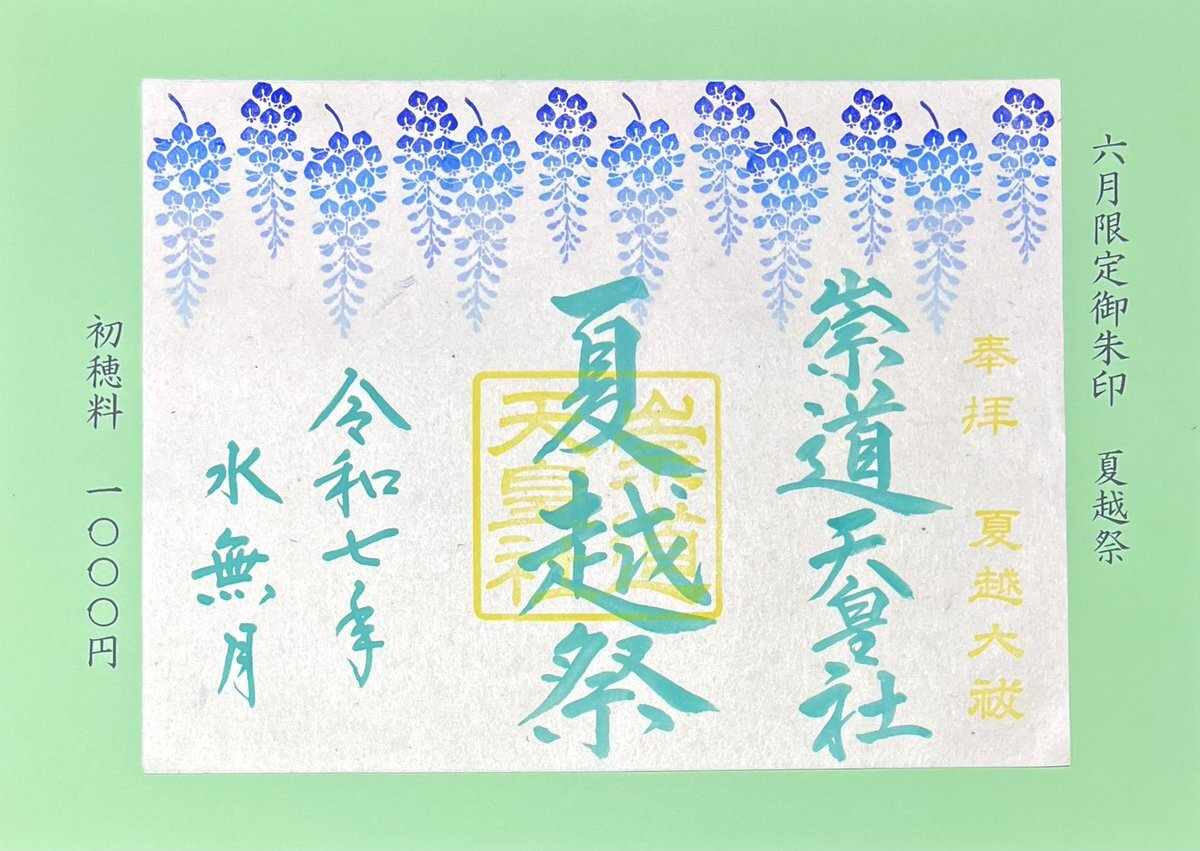 六月限定御朱印　夏越祭
奉拝　夏越大祓
崇道天皇社
夏越祭
崇道
天皇社
令和七年
水無月
初穂料　一〇〇〇円